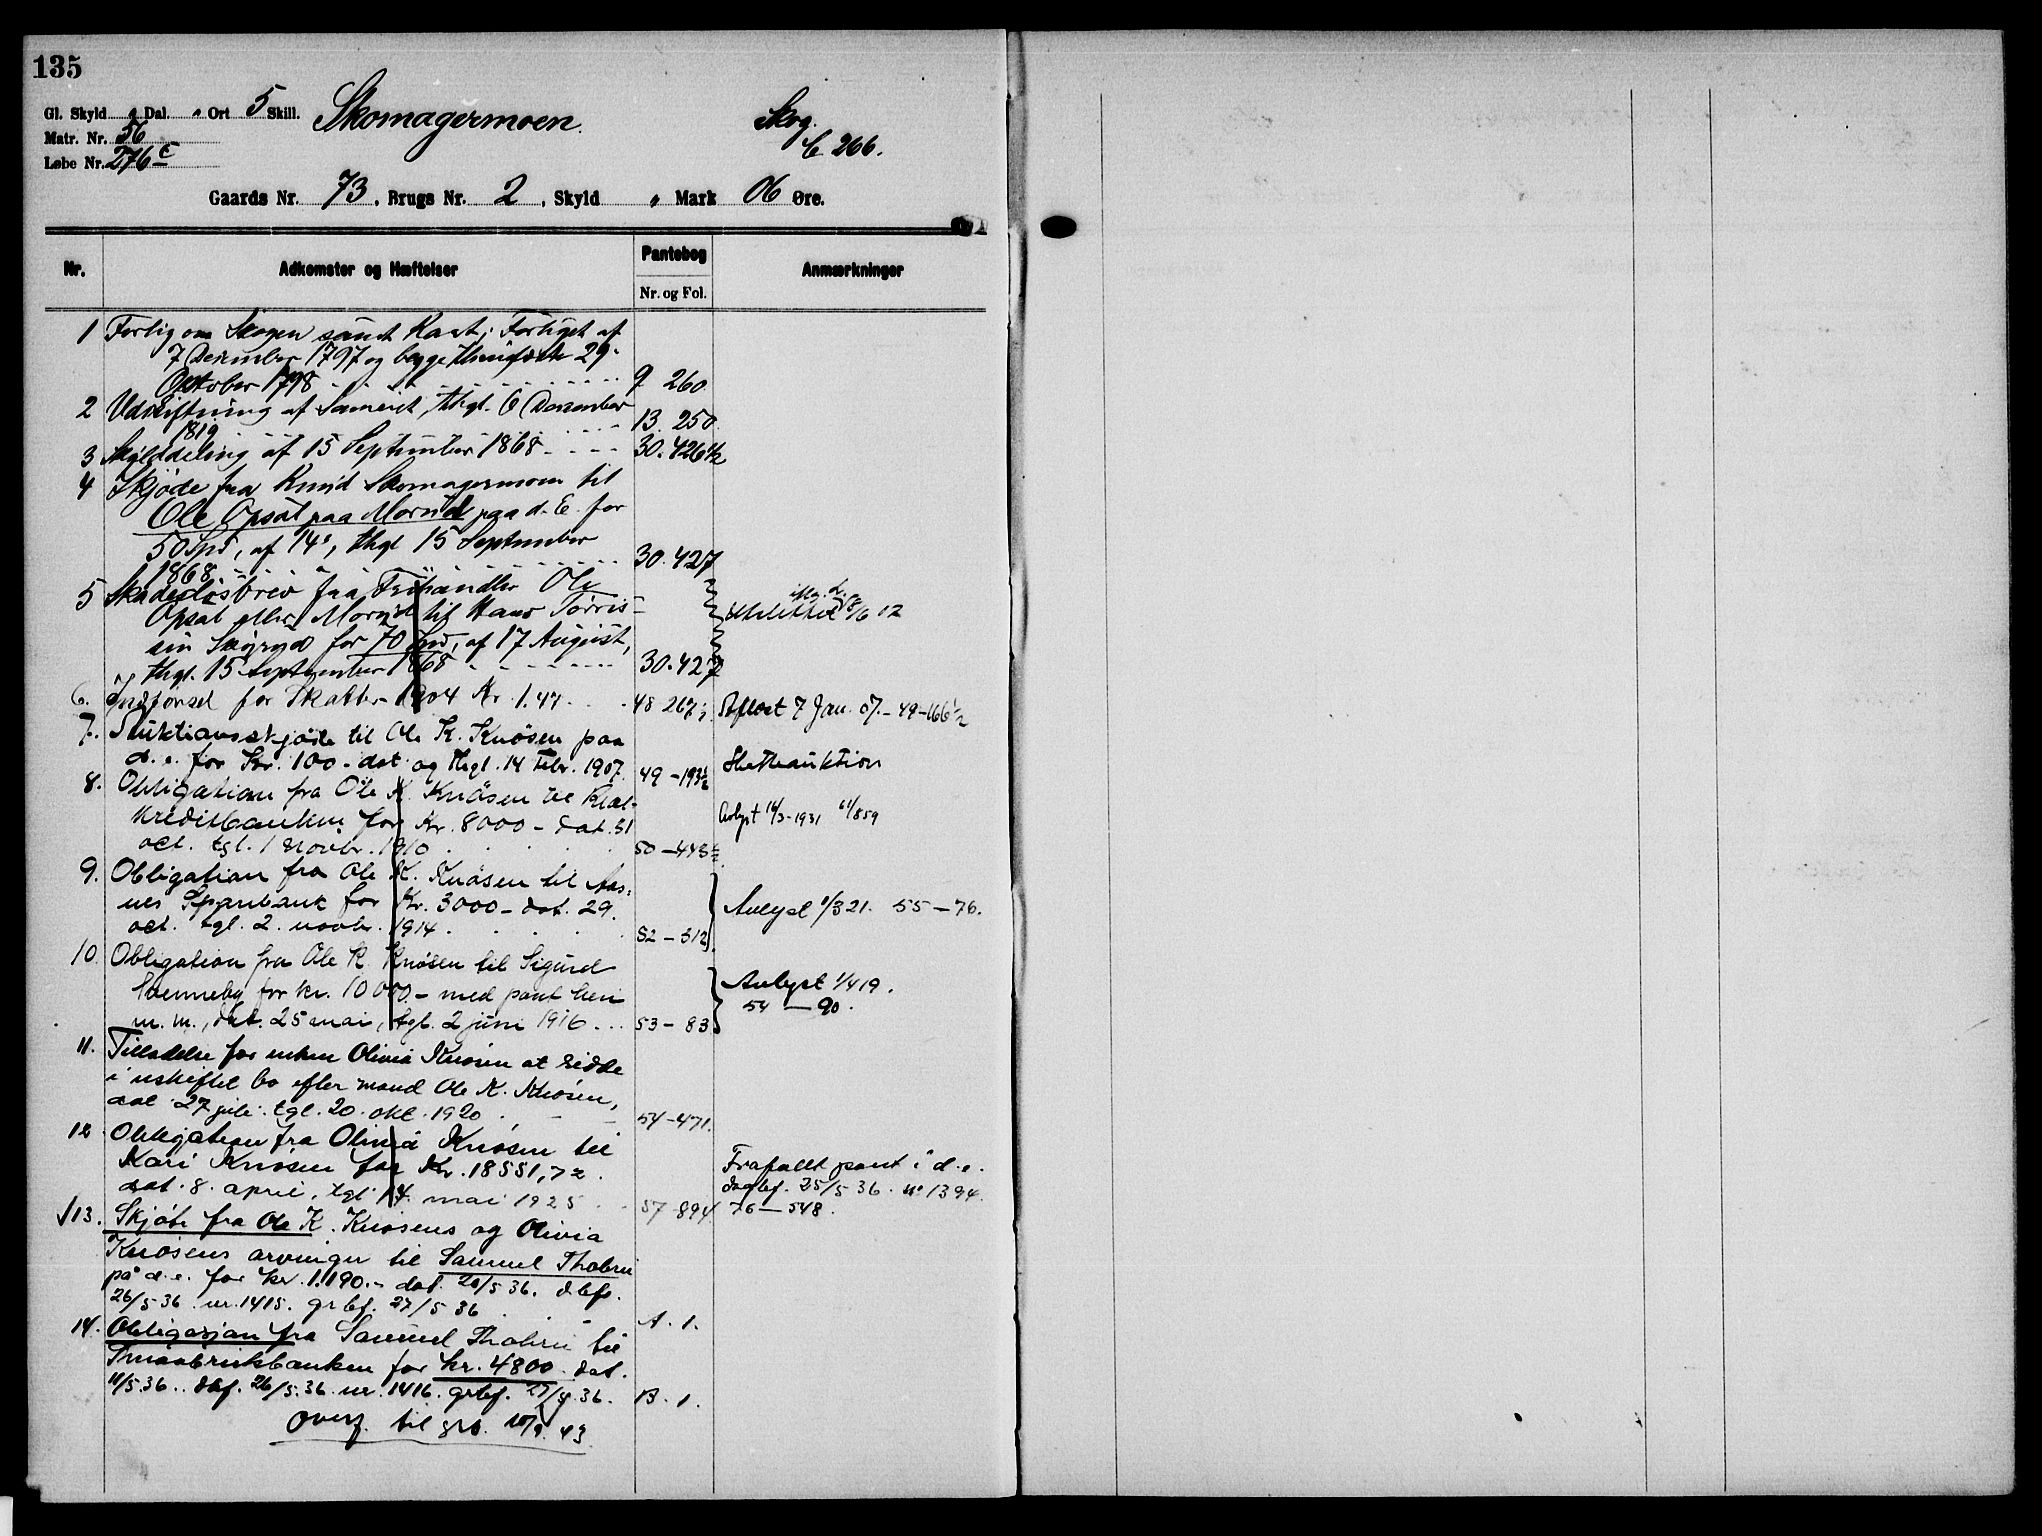 135
Gl. Skyld " Dal. " Ort 5 Skill. Skomagermoen. Skog.
Matr. Nr. 56 C 266.
Løbe Nr. 276 c
Gaards Nr. 73, Brugs Nr. 2, Skyld " Mark 06 Øre.
Nr. Adkomster og Hæftelser Pantebog Nr. og Fol. Anmærkninger
1 Forlig om Skogen samt Kart, Forliget af
7 Dezember 1797 og begge 29
Oktober 1798 9 260
2 Udskiftning af Sameiet, thgl. 6 Dezember
1819 13. 250
3 Skylddeling af 15 September 1868 30. 426 1/2
4 Skjøde fra Knud Skomagermoen til
Ole Opsat paa Morud paa d. E. for
50 Spd, af 14', thgl 15 September
1868 30. 427
5 Skadesløsbrev fra Frihandler Ole
Opsat eller Morud til Hans Torris-
sen for 70 Spd, af 17 August,
thgl. 15 September 1868 30. 427 Udslettet 02
6. Indførsel for Skatter 1904 Kr. 1.47 48 267 Aflæst 7 Jan. 07. - 49-166 1/2
7. Auktionsskjøde til Ole K. Knøsen paa
d. e. for Kr. 100 - dat. og thgl. 14 Febr. 1907. 49 - 193 1/2 Skatteauktion
8. Obligation fra Ole K. Knøsen til Real-
kreditbanken for Kr. 8000 - dat. 31
oct. tgl. 1 novbr. 1910 50 - 443 Avlyst 16/3-1931 61/859
9. Obligation fra Ole K. Knøsen til Aas-
nes Sparebank for Kr. 3000 - dat. 29.
oct. tgl. 2. novbr. 1914. 52 - 312 Avlyst 1/321. 55 - 76.
10 Obligation fra Ole K. Knøsen til Sigurd
for kr. 10 000. - med pant heri
m. m., dat. 25 mai, tgl. 2 juni 1916 53 - 83 Avlyst 1/419.
54 - 90.
11. Tilladelse for enken Olivia Knøsen at sidde
i uskiftet bo efter mand Ole K. Knøsen,
dat 27 juli. tgl. 20. okt. 1920 54 - 471.
12 Obligation fra Olivia Knøsen til
Kari Knøsen for Kr. 18551,72.
dat. 8. april, tgl. 14. mai 1925 57 - 894
Frafallt pant i d. e.
dagbf. 25/5 36. nr 1394.
76 - 548.
√13. Skjøte fra Ole K. Knøsens og Olivia
Knøsens arvinger til Samuel
på d. e. for kr. 1.190.- dat. 20/5 36. dbf.
26/5 36. nr. 1415. grbf. 27/5 36 A. 1.
14. Obligasjon fra Samuel til
Smaabrukbanken for kr. 4800 dat.
11/5.36.. dbf. 26/5.36 nr. 1416. grbf. 27/5.36. B. 1.
overf. til grb. 43